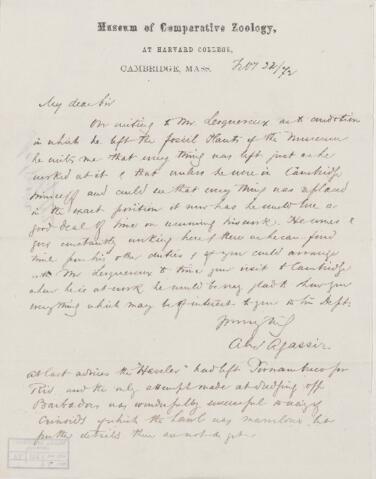 Museum of Comparative Zoology,
AT HARVARD COLLEGE,
CAMBRIDGE, MASS.
My dear Sir
On writing to Mr Lesquereux as to condition
in which he left the fossil Plants of the Museum
he writes me that every thing was left just as he
worked at it & that unless he were in Cambridge
himself and could see that every thing was replaced
in the exact position it now has he would lose a
good deal of time on resuming his work. He comes &
goes constantly working here & there as he can find
time from his other duties & if you could arrange
with Mr Lesquereux to time your visit to Cambridge
when he is at work he would be very glad to show you
everything which may be of interest to you in his Dept.
Yours truly
Alex Agassiz
At last advices the "Hassler" had left Pernambuco for
Rio and the only attempt made at dredging off
Barbados was wonderfully successful
Crinoids of which the haul was marvellous but
further details there are not as yet.